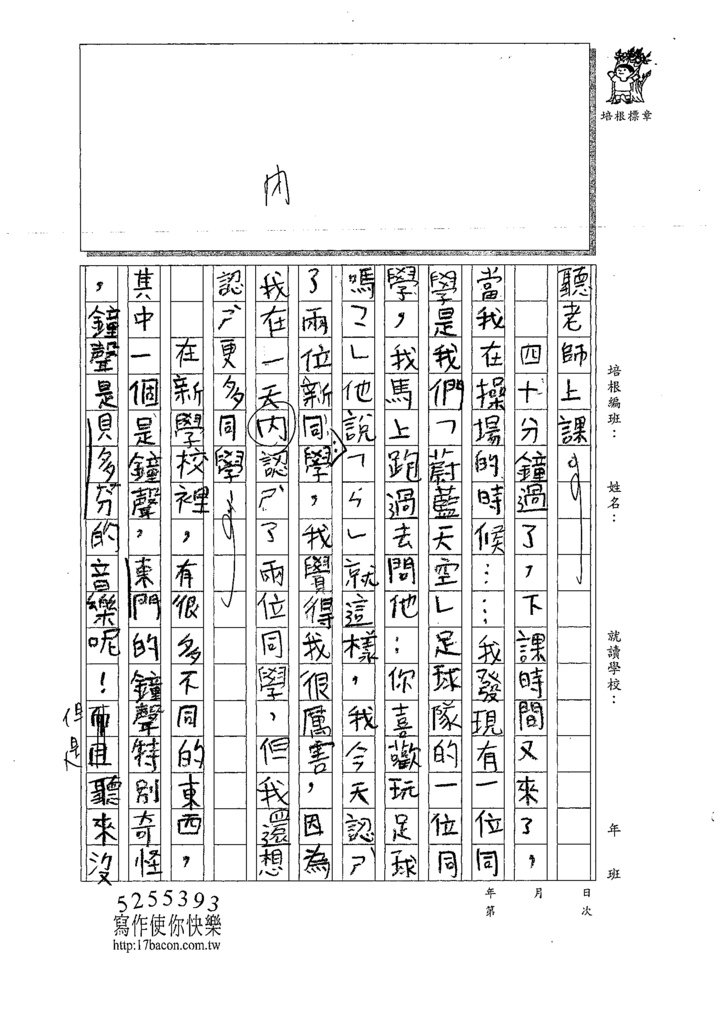 內
培根標章
聽老師上課
四十分鐘過了，下課時間又來了，
當我在操場的時候……我發現有一位同
學是我們「蔚藍天空」足球隊的一位同
學，我馬上跑過去問他：你喜歡玩足球
嗎？」他說「ㄣ」就這樣，我今天認ㄕˋ
了兩位新同學，我覺得我很厲害，因為
我在一天內認ㄕˋ了兩位同學，但我還想
認ㄕˋ更多同學
在新學校裡，有很多不同的東西，
其中一個是鐘聲，東門的鐘聲特別奇怪
，鐘聲是貝多芬的音樂呢！而且聽來沒
但是
培根編班：
姓名：
就讀學校：
年
班
年
月
日
第
次
5255393
寫作使你快樂
http:17bacon.com.tw